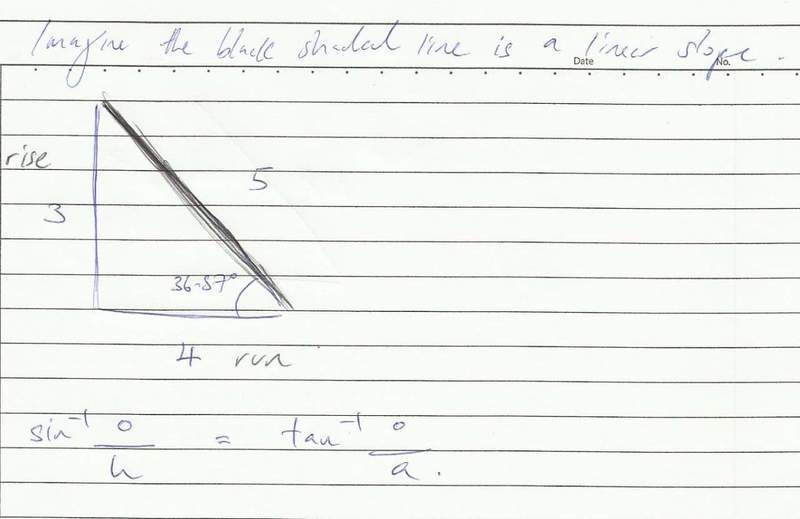 Imagine the black shaded line is a linear slope.
Date No.
rise
5
3
36.87°
4 run
sin⁻¹ o/h = tan⁻¹ o/a.